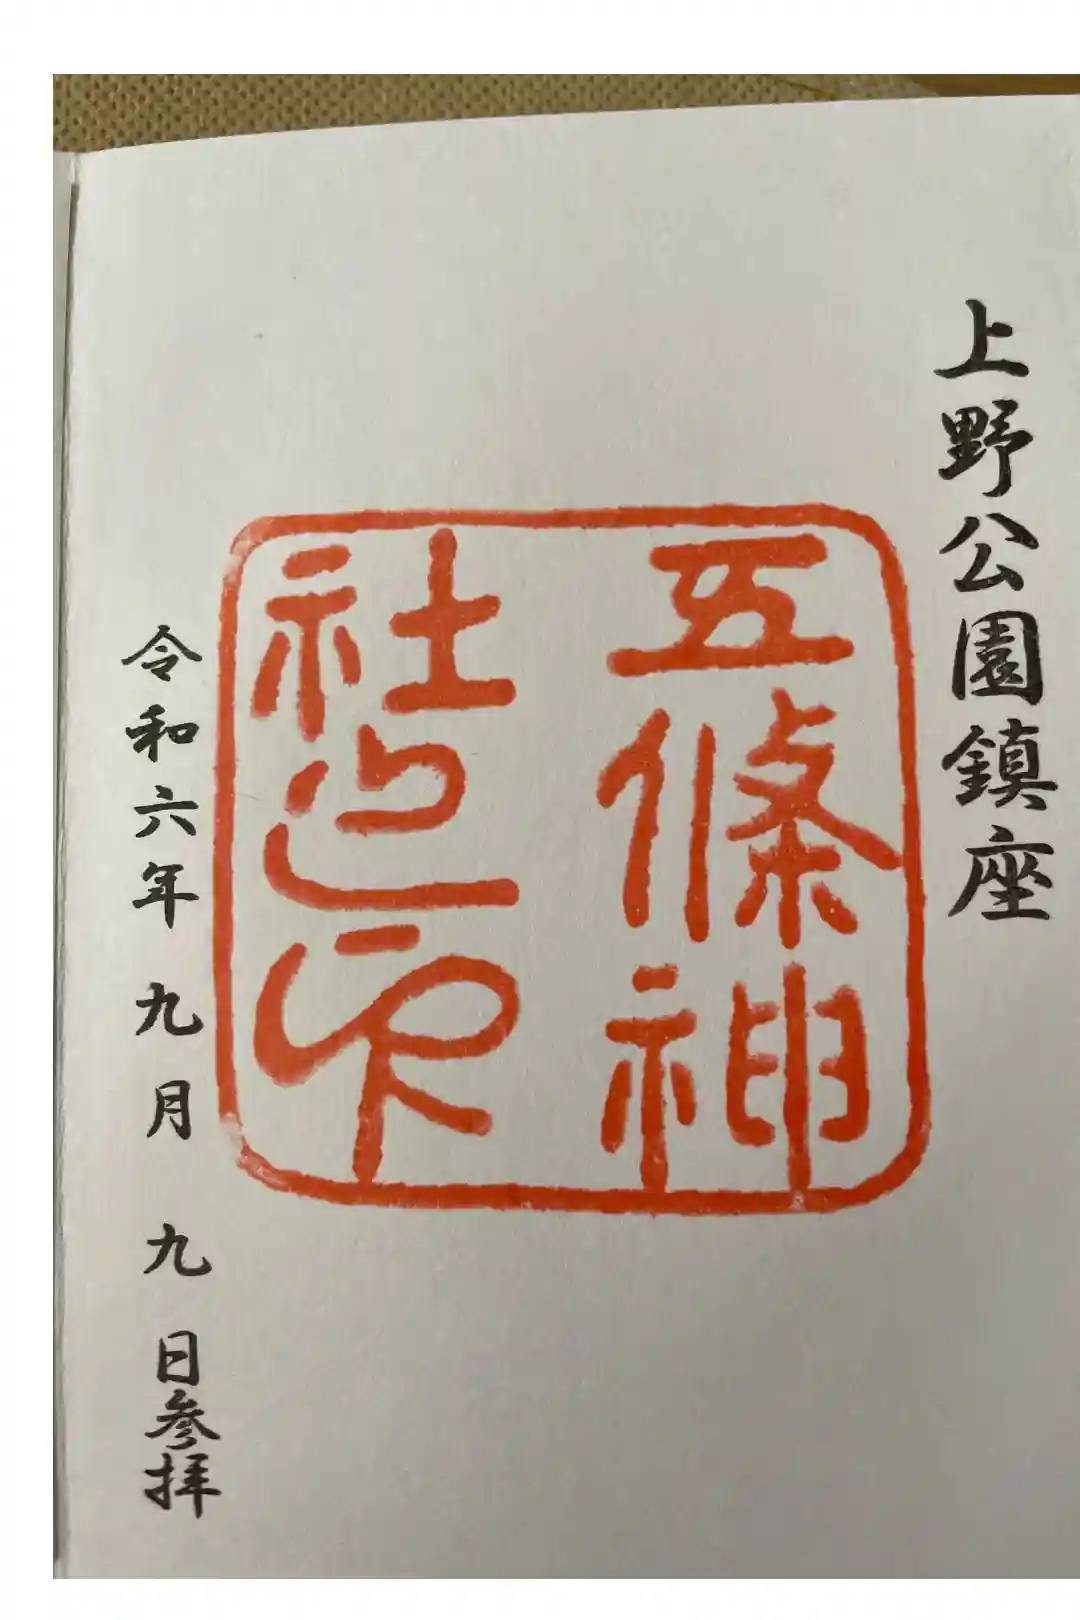 上野公園鎮座
五條神
社之印
令和六年九月九日参拝